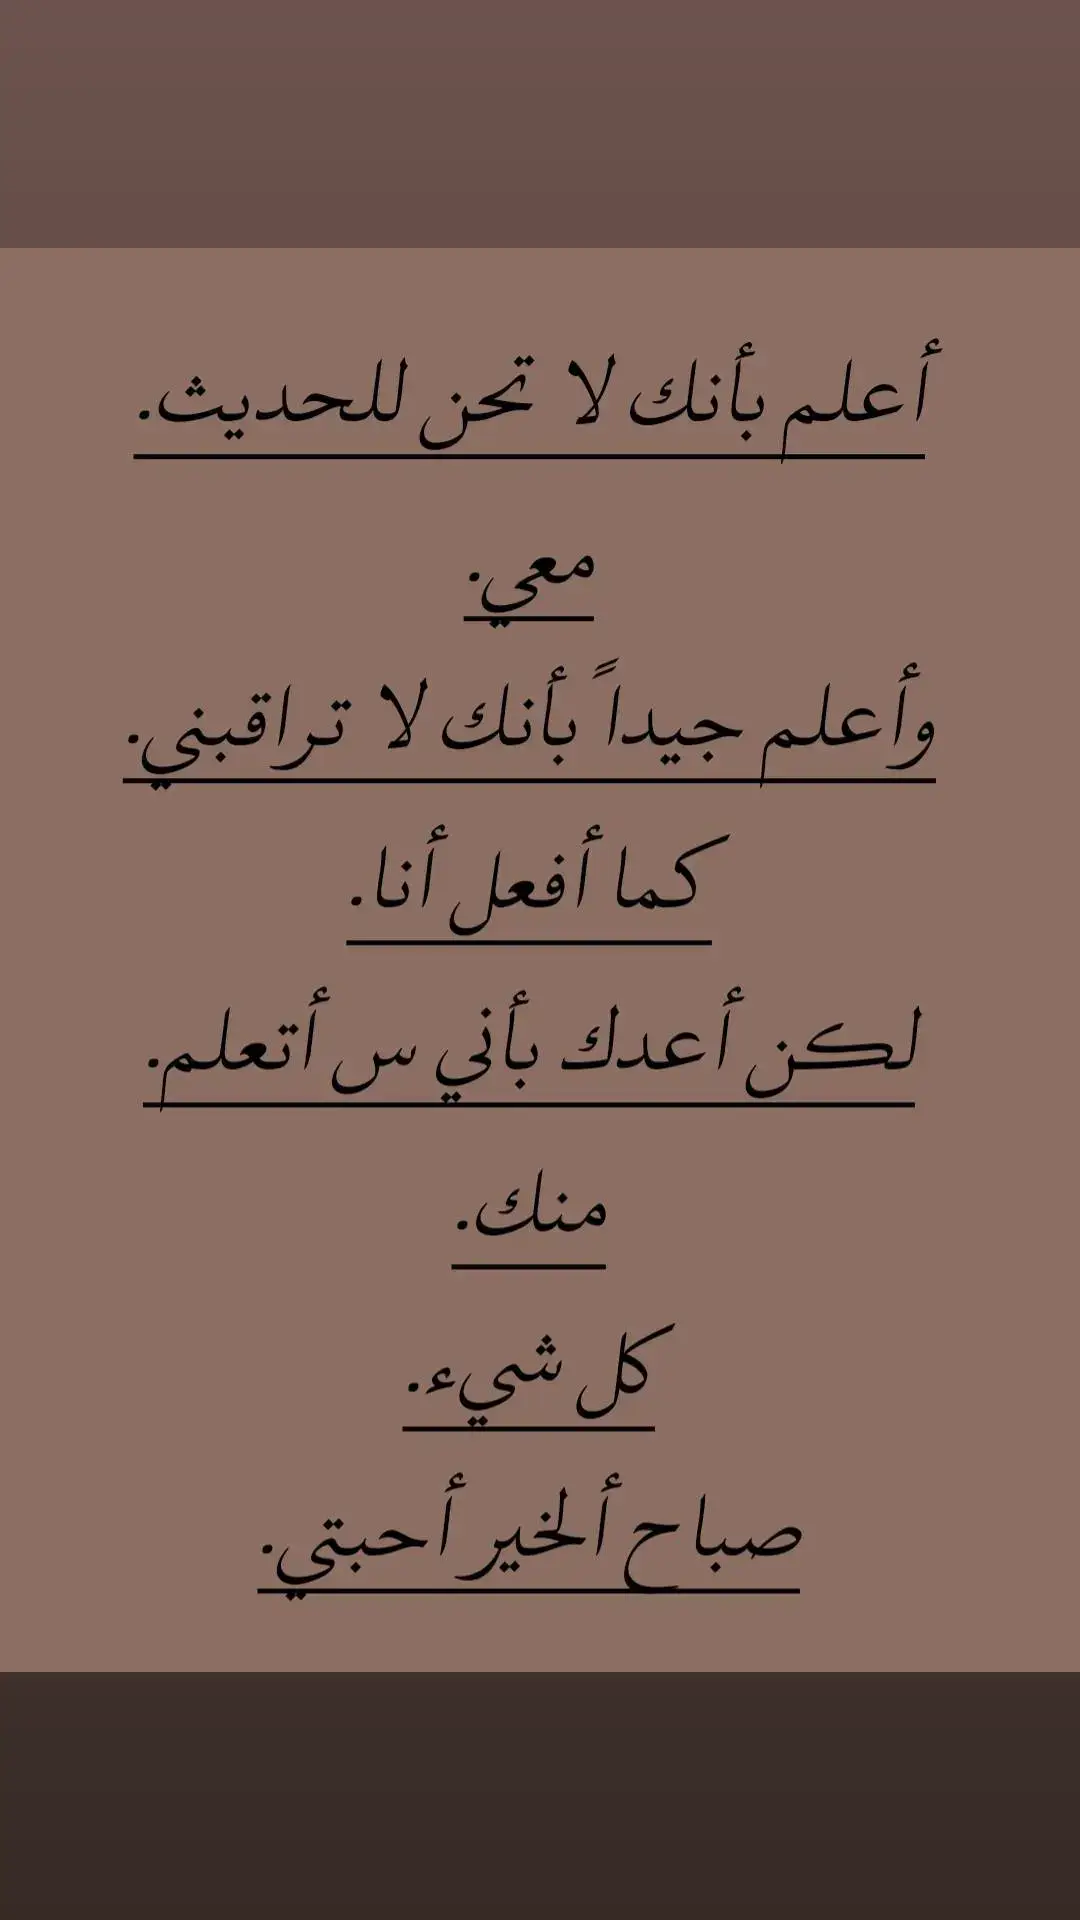 أعلم بأنك لا تحن للحديث.
معي.
وأعلم جيداً بأنك لا تراقبني.
كما أفعل أنا.
لكن أعدك بأني س أتعلم.
منك.
كل شيء.
صباح ألخير أحبتي.